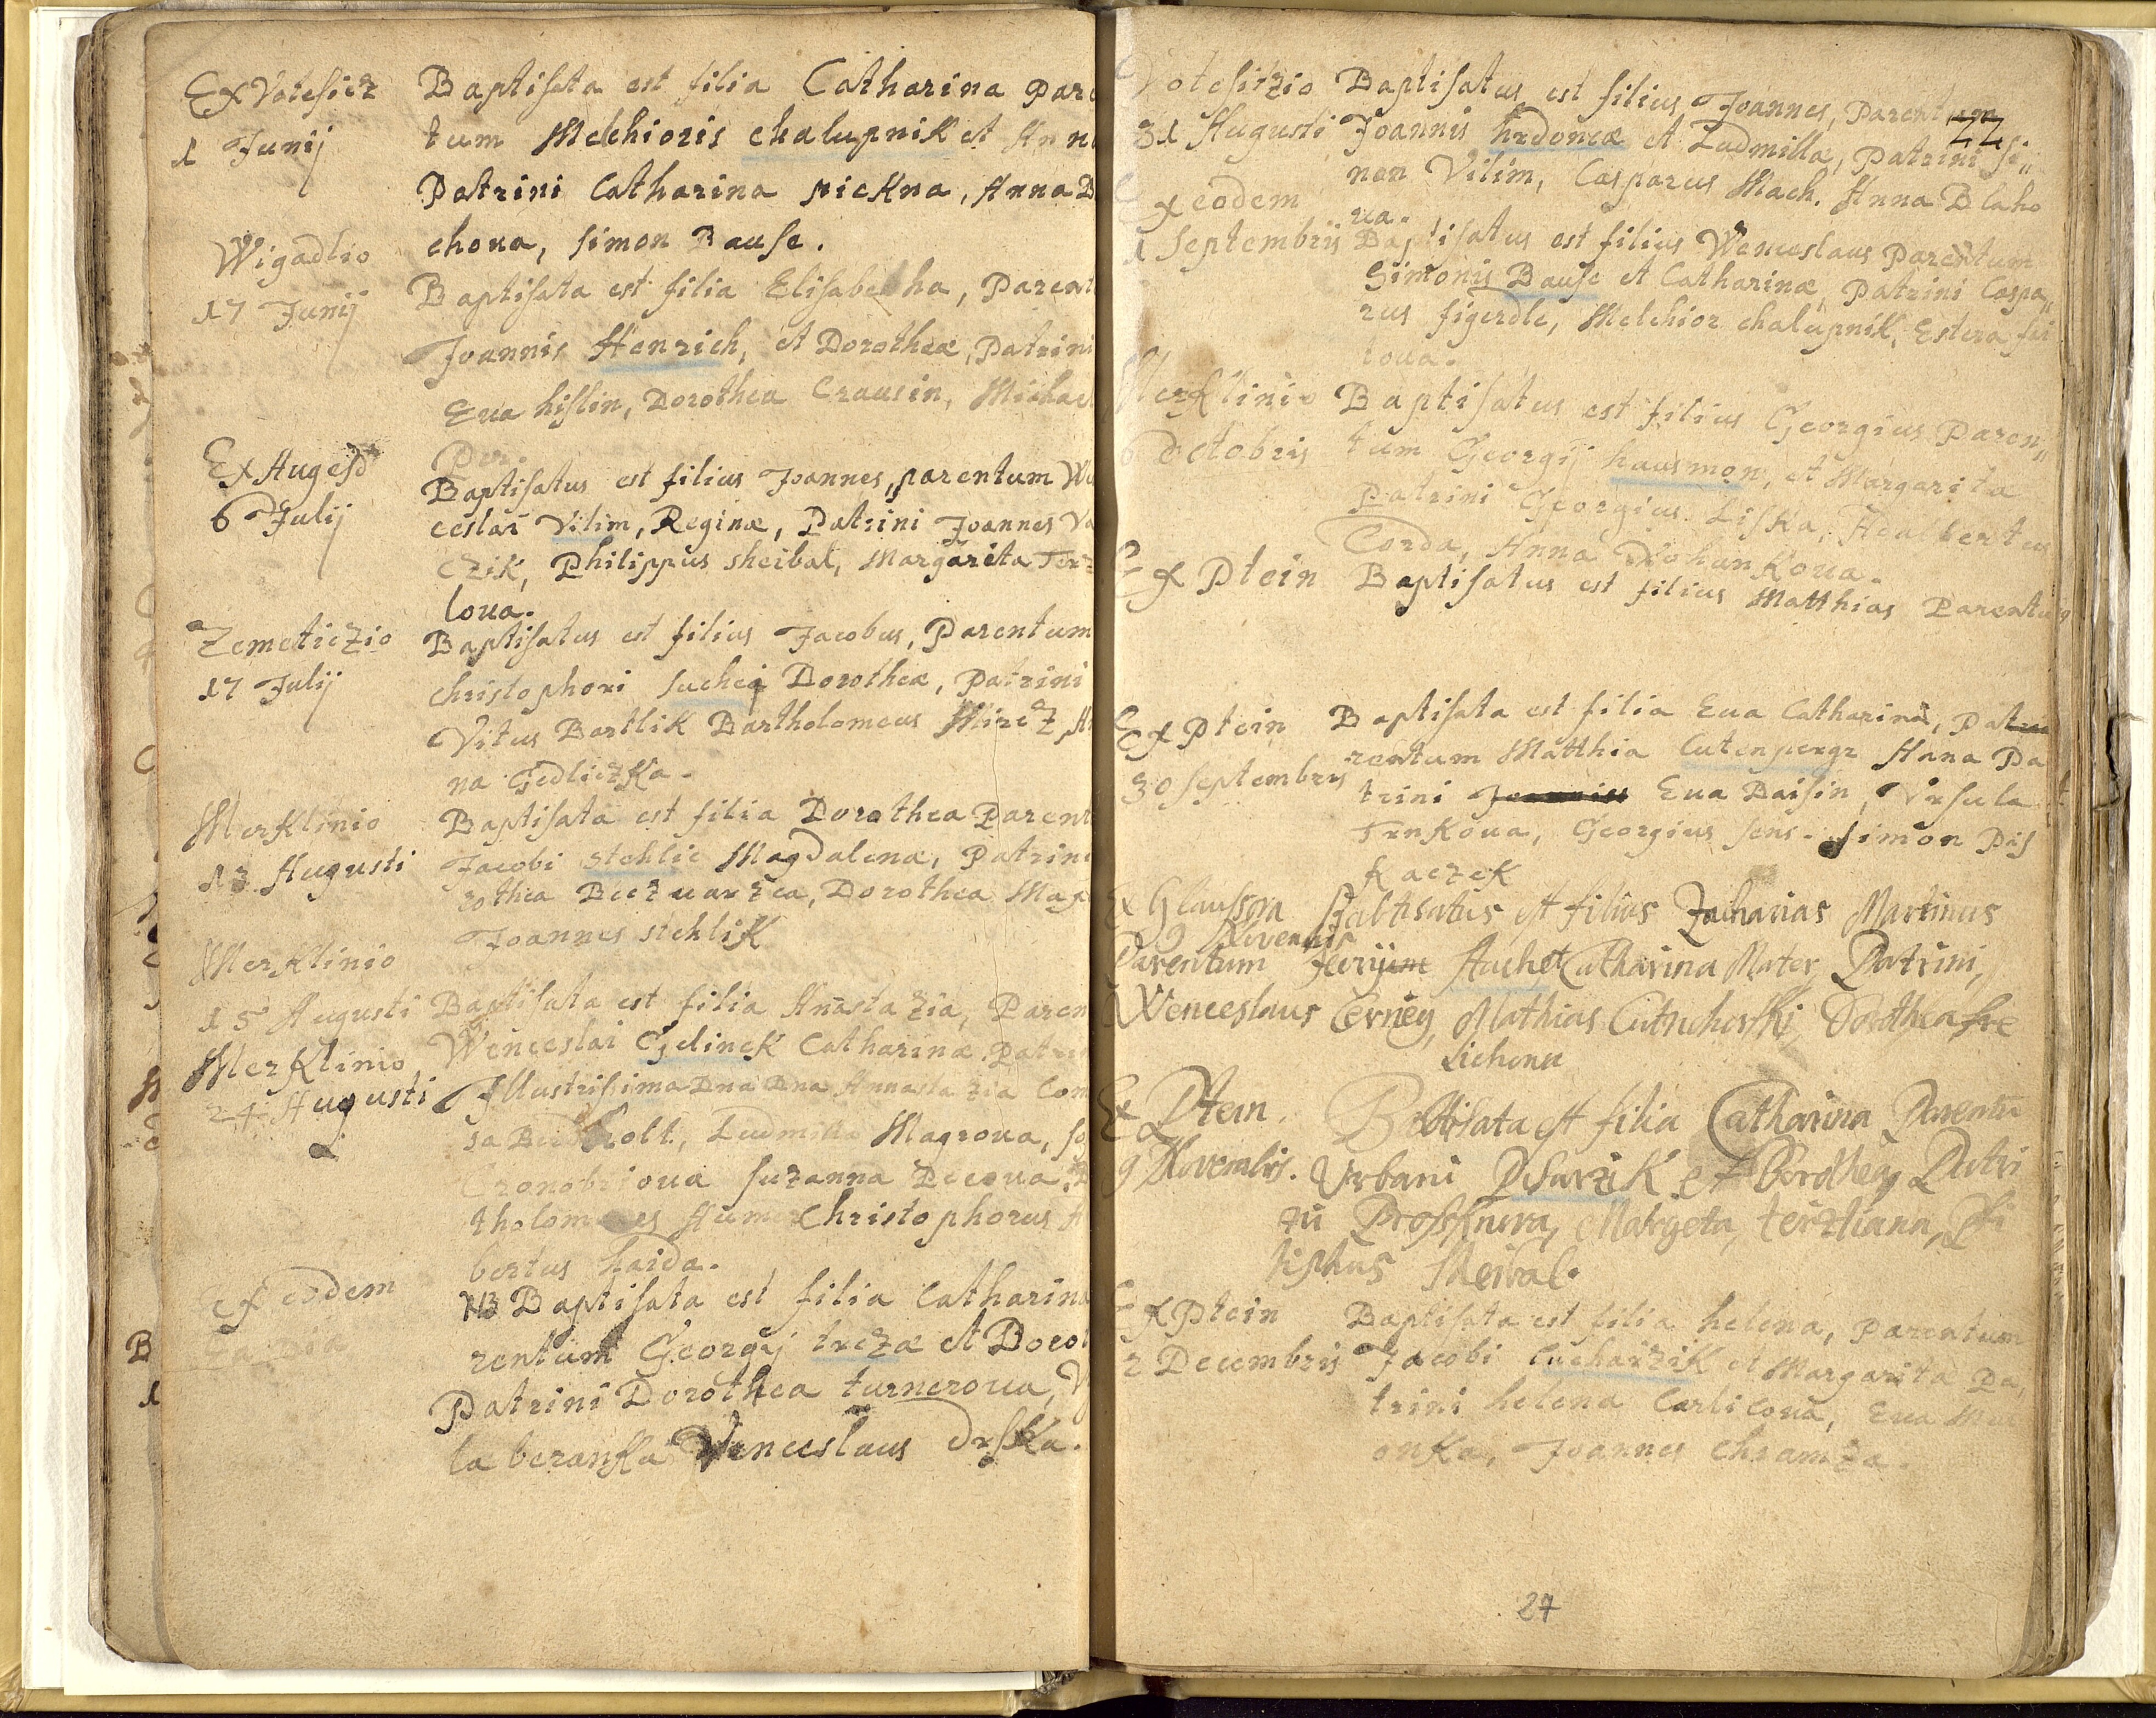 Ex Votesicz Baptisata est filia Catharina Pare
1 Junij tum Melchioris chalupnik et Ann
Patrini Catharina pickna, Anna B
choua, simon Bause.
Wigadlio
17 Junij Baptisata est filia Elisabetha, Parent
Joannis Henrich, et Dorotheæ, Patrini
Eua hislin, Dorothea Crausin, Michael
Per.
Ex Augesd
6 Julij Baptisatus est filius Joannes, parentum We
ceslai Vilim, Reginæ, Patrini Joannes Va
czik, Philippus sheibal, Margarita Ter
loua.
Zemeticzio Baptisatus est filius Jacobus, Parentum
17 Julij christophori suchei Dorotheæ, Patrini
Vitus Bartlik Bartholomeus Mirez, An
na Gedliczka.
Merklinio Baptisata est filia Dorothea Parent
13 Augusti Jacobi stehlic Magdalenæ, Patrini
rothea Beczuarzca, Dorothea Mag
Joannes stehlik
Merklinio
15 Augusti Baptisata est filia Anastazia, Paren
Wenceslai Gelinek Catharinæ Patri
Merklinio
24 Augusti Illustrisima Dna Dna Annastazia Com
sa holt, Ludmilla Magroua,
Cronobrioua Suzanna Pecoua,
tholomees Christophorus
bertus haida.
Ex eodem NB Baptisata est filia Catharina
rentum Georgij treza et Doro
Patrini Dorothea turneroua, V
la beranka Venceslaus Drska.
Votesitzio Baptisatus est filius Joannes, Parentum
22
31 Augusti Joannis hrdoncæ et Ludmilla, Patrini Si„
non Vilim, Casparus Mach. Anna Blaho
ua.
Ex eodem
1 Septembris Baptisatus est filius Wenceslaus Parentum
Simonis Bause et Catharinæ, Patrini Caspa„
rus figerdle, Melchior chalupnik, Estera
roua.
Merklinio Baptisatus est filius Georgius Paren„
6 Octobris tum Georgij hausmon, et Margarita
Patrini Georgius Liska, Adalbertus
Corda, Anna Dohankoua.
Ex Ptein Baptisatus est filius Matthias Parentum
Ex Ptein Baptisata est filia Eua Catharina, Pa
30 Septembris rentum Matthia Cutenpergr Anna Pa
trini Joannes Eua Daisin, Vrsula
Trnkoua, Georgius sens. Simon Pis
kaczek
Ex Glaussna Babtisatus est filius Zacharias Martinus
9 Novembris
Parentum Jurij Auchet Catharina Mater, Patrini,
Wenceslaus Cerney, Mathias Cutnohorski, Dorothea
Lichonu
Ex Ptein. Babtisata est filia Catharina Parentu
9 Novembris. Vrbani Pisarzik et Dorothea, Patri
zu Prossknera, Margeta, terzliana, Phi
liphus Sheibal.
Ex Ptein Baptisata est filia helena, Parentum
2 Decembris Jacobi Cucharzik et Margarita Pa„
trini helena Carlicoua, Eua
onka, Joannes Chramza.
27